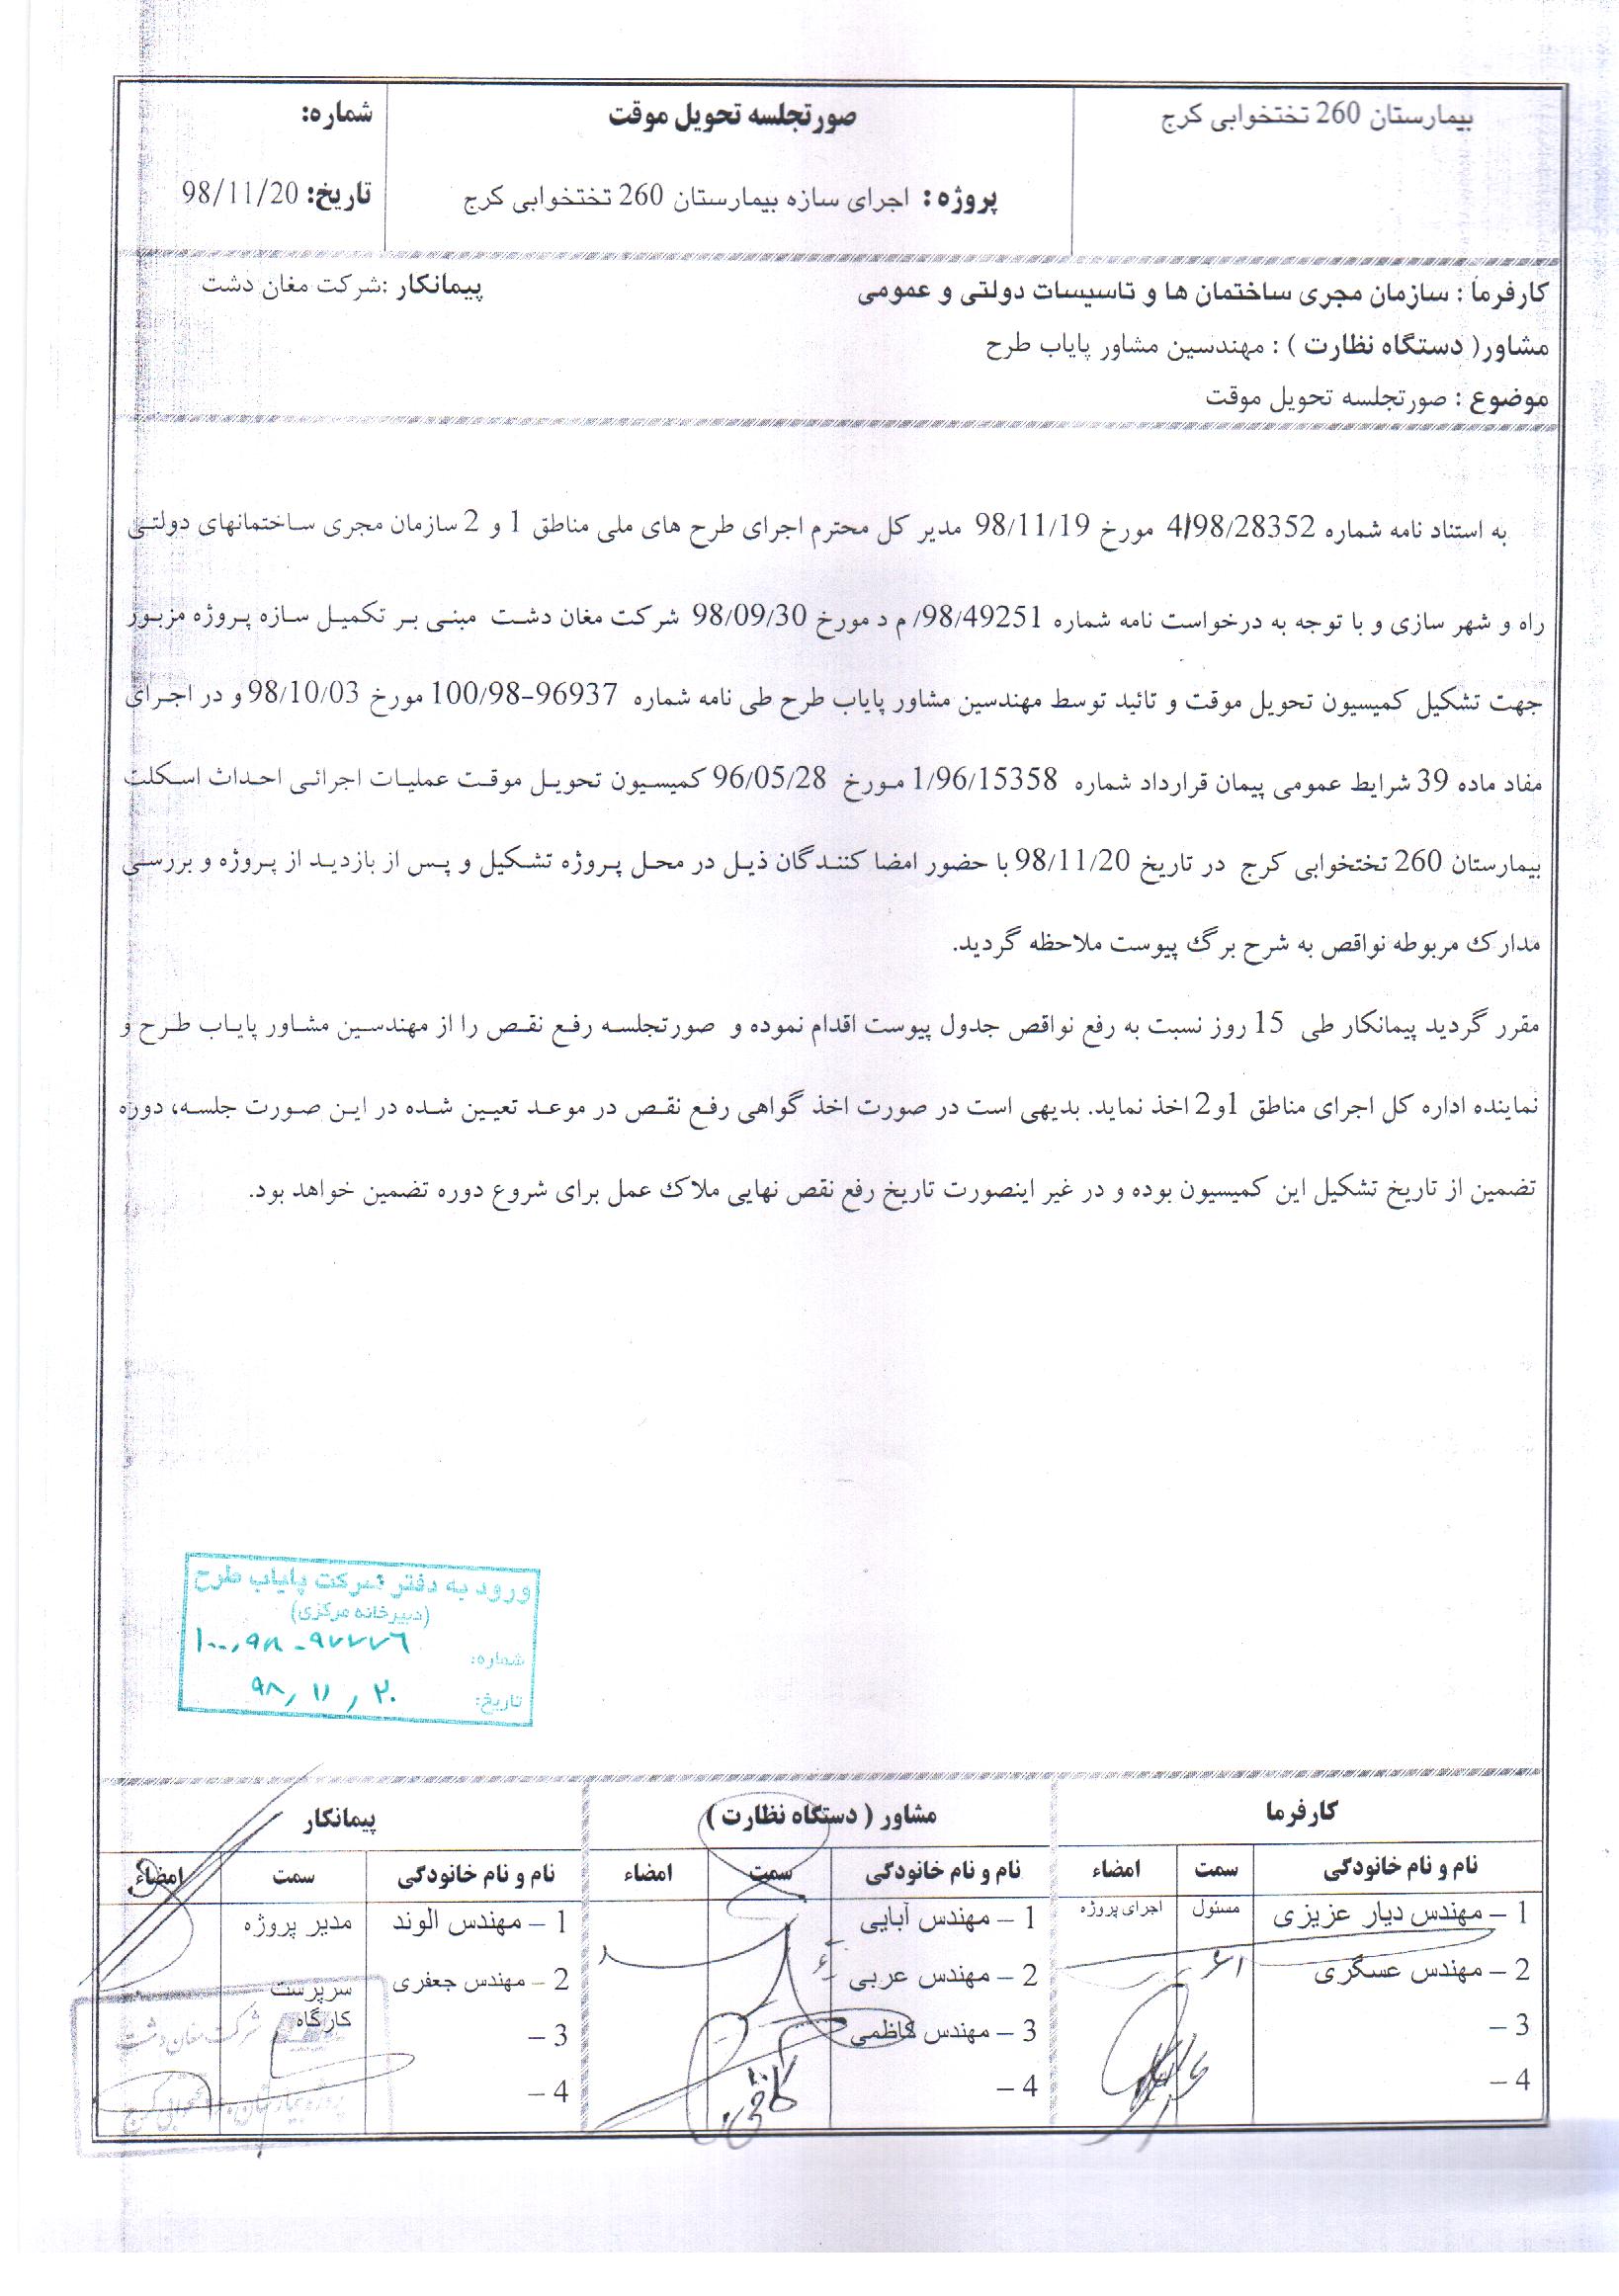 بیمارستان 260 تختخوابی کرج
صورتجلسه تحویل موقت
شماره:
پروژه : اجرای سازه بیمارستان 260 تختخوابی کرج
تاریخ: 98/11/20
کارفرما : سازمان مجری ساختمان ها و تاسیسات دولتی و عمومی
پیمانکار :شرکت مغان دشت
مشاور( دستگاه نظارت ) : مهندسین مشاور پایاب طرح
موضوع : صورتجلسه تحویل موقت
به استناد نامه شماره 4/98/28352 مورخ 98/11/19 مدیر کل محترم اجرای طرح های ملی مناطق 1 و 2 سازمان مجری ساختمانهای دولتی
راه و شهر سازی و با توجه به درخواست نامه شماره 98/49251/ م د مورخ 98/09/30 شرکت مغان دشت مبنی بر تکمیل سازه پروژه مزبور
جهت تشکیل کمیسیون تحویل موقت و تائید توسط مهندسین مشاور پایاب طرح طی نامه شماره 96937-100/98 مورخ 98/10/03 و در اجرای
مفاد ماده 39 شرایط عمومی پیمان قرارداد شماره 1/96/15358 مورخ 96/05/28 کمیسیون تحویل موقت عملیات اجرائی احداث اسکلت
بیمارستان 260 تختخوابی کرج در تاریخ 98/11/20 با حضور امضا کنندگان ذیل در محل پروژه تشکیل و پس از بازدید از پروژه و بررسی
مدارک مربوطه نواقص به شرح برگ پیوست ملاحظه گردید.
مقرر گردید پیمانکار طی 15 روز نسبت به رفع نواقص جدول پیوست اقدام نموده و صورتجلسه رفع نقص را از مهندسین مشاور پایاب طرح و
نماینده اداره کل اجرای مناطق 1و2 اخذ نماید. بدیهی است در صورت اخذ گواهی رفع نقص در موعد تعیین شده در این صورت جلسه، دوره
تضمین از تاریخ تشکیل این کمیسیون بوده و در غیر اینصورت تاریخ رفع نقص نهایی ملاک عمل برای شروع دوره تضمین خواهد بود.
ورود به دفتر شرکت پایاب طرح
(دبیرخانه مرکزی)
شماره: ۱۰۰,۹۸-۹۷۷۷۶
تاریخ: ۹۸,۱۱,۲۰
کارفرما
مشاور ( دستگاه نظارت )
پیمانکار
نام و نام خانودگی سمت امضاء
نام و نام خانودگی سمت امضاء
نام و نام خانودگی سمت امضاء
1 – مهندس دیار عزیزی مسئول اجرای پروژه
1 – مهندس آبایی
1 – مهندس الوند مدیر پروژه
2 – مهندس عسگری
2 – مهندس عربی
2 – مهندس جعفری سرپرست کارگاه
3 –
3 – مهندس کاظمی
3 –
4 –
4 –
4 –
شرکت مغان دشت